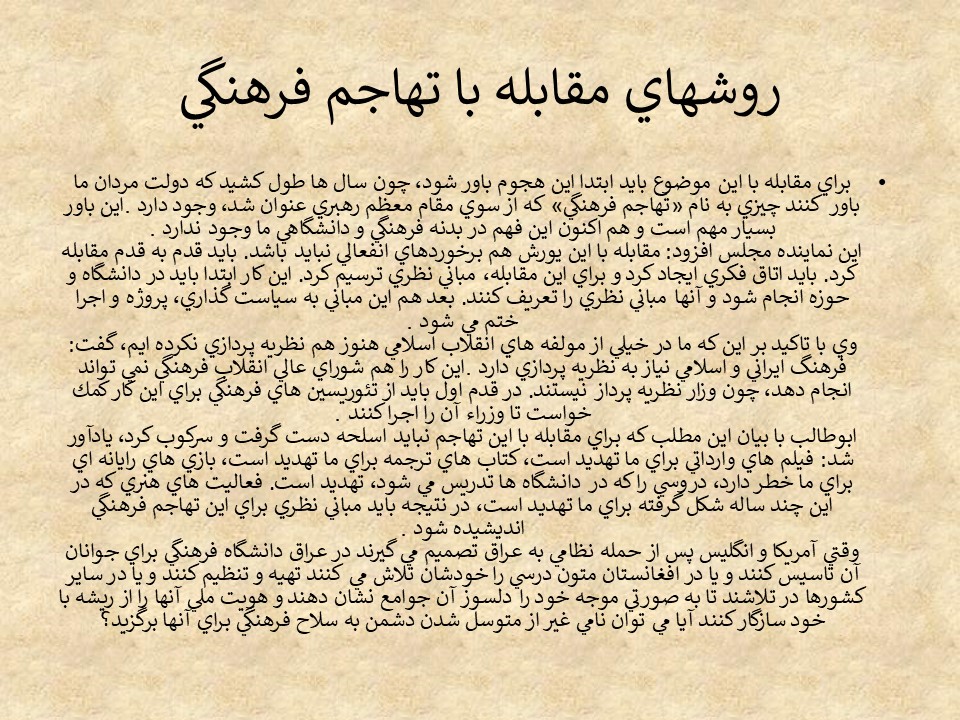 روشهاي مقابله با تهاجم فرهنگي
• براي مقابله با اين موضوع بايد ابتدا اين هجوم باور شود، چون سال ها طول كشيد كه دولت مردان ما
باور كنند چيزي به نام «تهاجم فرهنگي» كه از سوي مقام معظم رهبري عنوان شد، وجود دارد .اين باور
بسيار مهم است و هم اكنون اين فهم در بدنه فرهنگي و دانشگاهي ما وجود ندارد .
اين نماينده مجلس افزود: مقابله با اين يورش هم برخوردهاي انفعالي نبايد باشد. بايد قدم به قدم مقابله
كرد. بايد اتاق فكري ايجاد كرد و براي اين مقابله، مباني نظري ترسيم كرد. اين كار ابتدا بايد در دانشگاه و
حوزه انجام شود و آنها مباني نظري را تعريف كنند. بعد هم اين مباني به سياست گذاري، پروژه و اجرا
ختم مي شود .
وي با تاكيد بر اين كه ما در خيلي از مولفه هاي انقلاب اسلامي هنوز هم نظريه پردازي نكرده ايم، گفت:
فرهنگ ايراني و اسلامي نياز به نظريه پردازي دارد .اين كار را هم شوراي عالي انقلاب فرهنگي نمي تواند
انجام دهد، چون وزار نظريه پرداز نيستند. در قدم اول بايد از تئوريسين هاي فرهنگي براي اين كار كمك
خواست تا وزراء آن را اجرا كنند .
ابوطالب با بيان اين مطلب كه براي مقابله با اين تهاجم نبايد اسلحه دست گرفت و سركوب كرد، يادآور
شد: فيلم هاي وارداتي براي ما تهديد است، كتاب هاي ترجمه براي ما تهديد است، بازي هاي رايانه اي
براي ما خطر دارد، دروسي را كه در دانشگاه ها تدريس مي شود، تهديد است. فعاليت هاي هنري كه در
اين چند ساله شكل گرفته براي ما تهديد است، در نتيجه بايد مباني نظري براي اين تهاجم فرهنگي
انديشيده شود .
وقتي آمريكا و انگليس پس از حمله نظامي به عراق تصميم مي گيرند در عراق دانشگاه فرهنگي براي جوانان
آن تاسيس كنند و يا در افغانستان متون درسي را خودشان تلاش مي كنند تهيه و تنظيم كنند و يا در ساير
كشورها در تلاشند تا به صورتي موجه خود را دلسوز آن جوامع نشان دهند و هويت ملي آنها را از ريشه با
خود سازگار كنند آيا مي توان نامي غير از متوسل شدن دشمن به سلاح فرهنگي براي آنها برگزيد؟